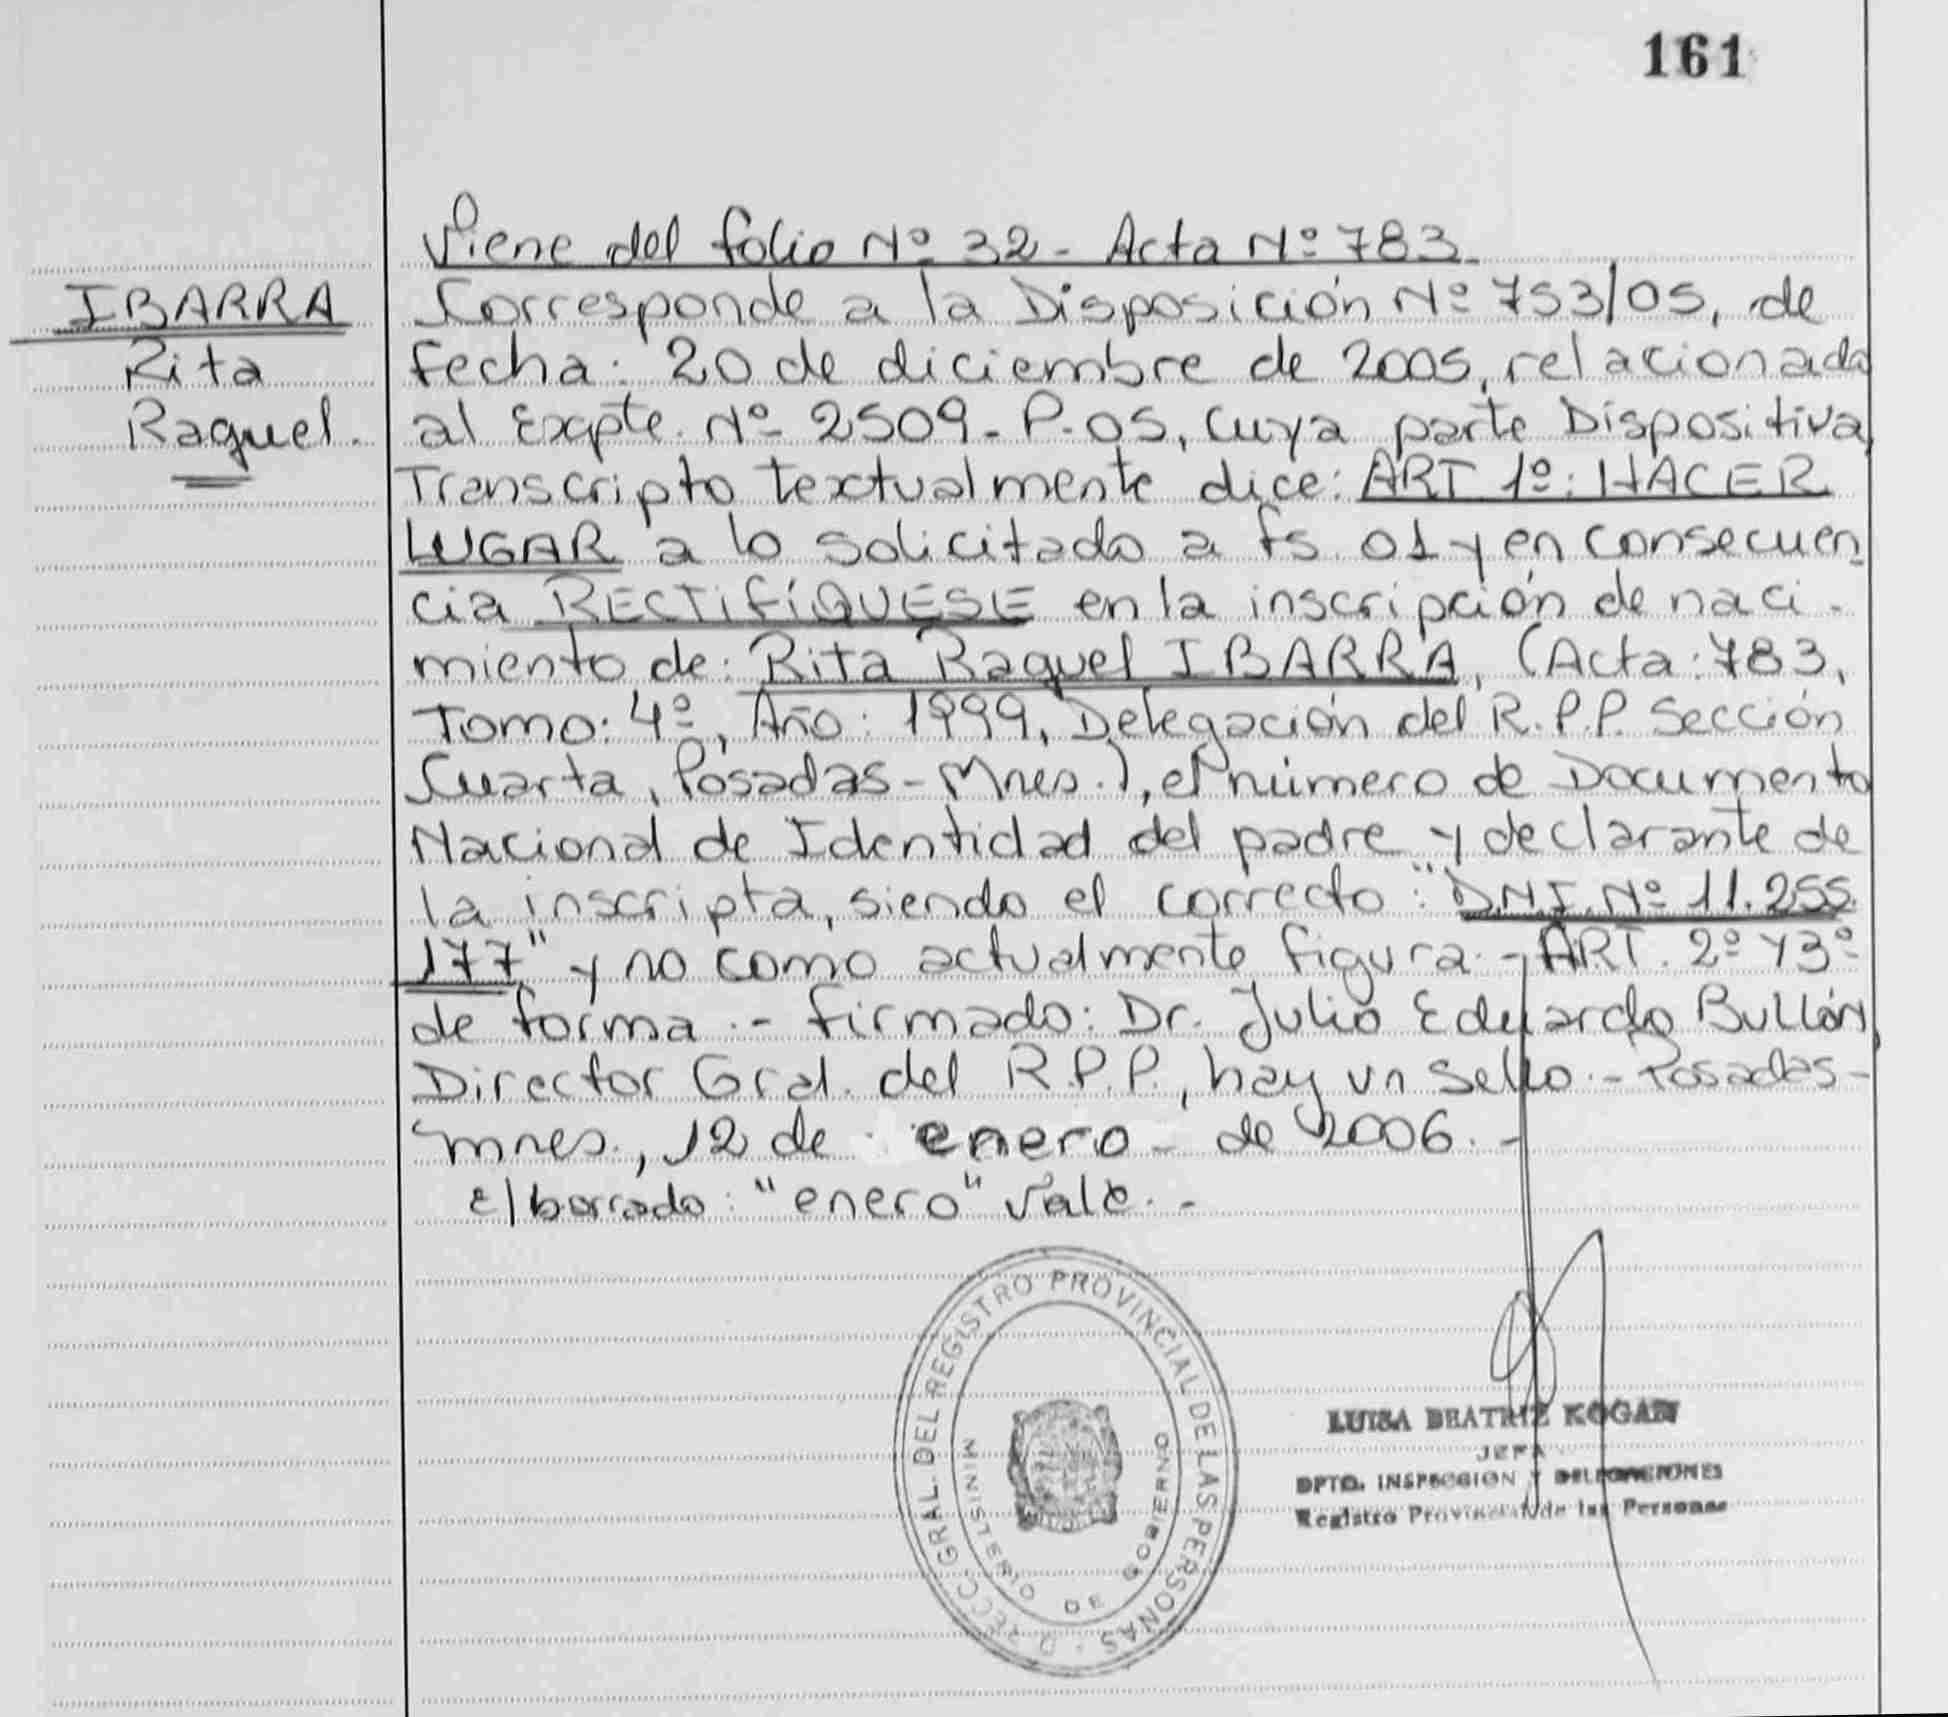 161
IBARRA
Rita
Raquel.
Viene del folio Nº 32 - Acta Nº 783.
Corresponde a la Disposición Nº 753/05, de
fecha: 20 de diciembre de 2005, relacionada
al Expte. Nº 2509-P-05, cuya parte Dispositiva
Transcripto textualmente dice: ART 1º: HACER
LUGAR a lo solicitado a fs. 01 y en consecuen-
cia RECTIFÍQUESE en la inscripción de naci-
miento de: Rita Raquel IBARRA, (Acta: 783,
Tomo: 4º, Año: 1999, Delegación del R.P.P. Sección
Cuarta, Posadas - Mnes.), el número de Documento
Nacional de Identidad del padre y declarante de
la inscripta, siendo el correcto: "D.N.I. Nº 11.255.
177" y no como actualmente figura.- ART. 2º Y 3º
de forma.- Firmado: Dr. Julio Eduardo Bullón,
Director Gral. del R.P.P., hay un sello.- Posadas -
Mnes., 12 de enero - de 2006.-
El borrado: "enero" vale.-
DIRECC. GRAL. DEL REGISTRO PROVINCIAL DE LAS PERSONAS
MINISTERIO DE GOBIERNO
LUISA BEATRIZ KOGAN
JEFA
DPTO. INSPECCION Y DELEGACIONES
Registro Provincial de las Personas